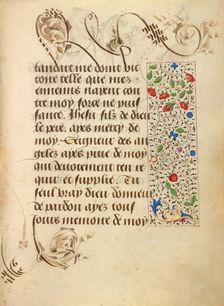 tandare me dont vic
toire telle que mes
ennemis naient con
tre moy force ne puis
sance. Ihesu filz de dieu
le pere, ayes mercy de
moy. Seigneur des an
geles ayes pitie de moy
qui devotement ten re
quier et supplie. Tu
seul vray dieu donneur
de pardon ayes tous
jours memoire de moy